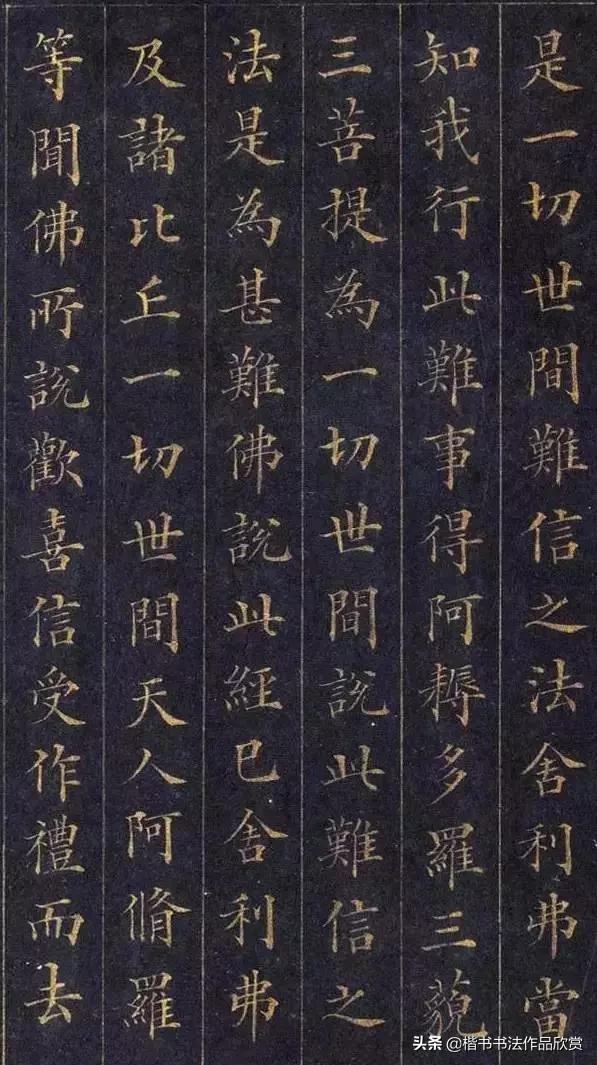 是一切世間難信之法舍利弗當
知我行此難事得阿耨多羅三藐
三菩提為一切世間說此難信之
法是為甚難佛說此經已舍利弗
及諸比丘一切世間天人阿脩羅
等聞佛所說歡喜信受作禮而去
头条 @楷书书法作品欣赏